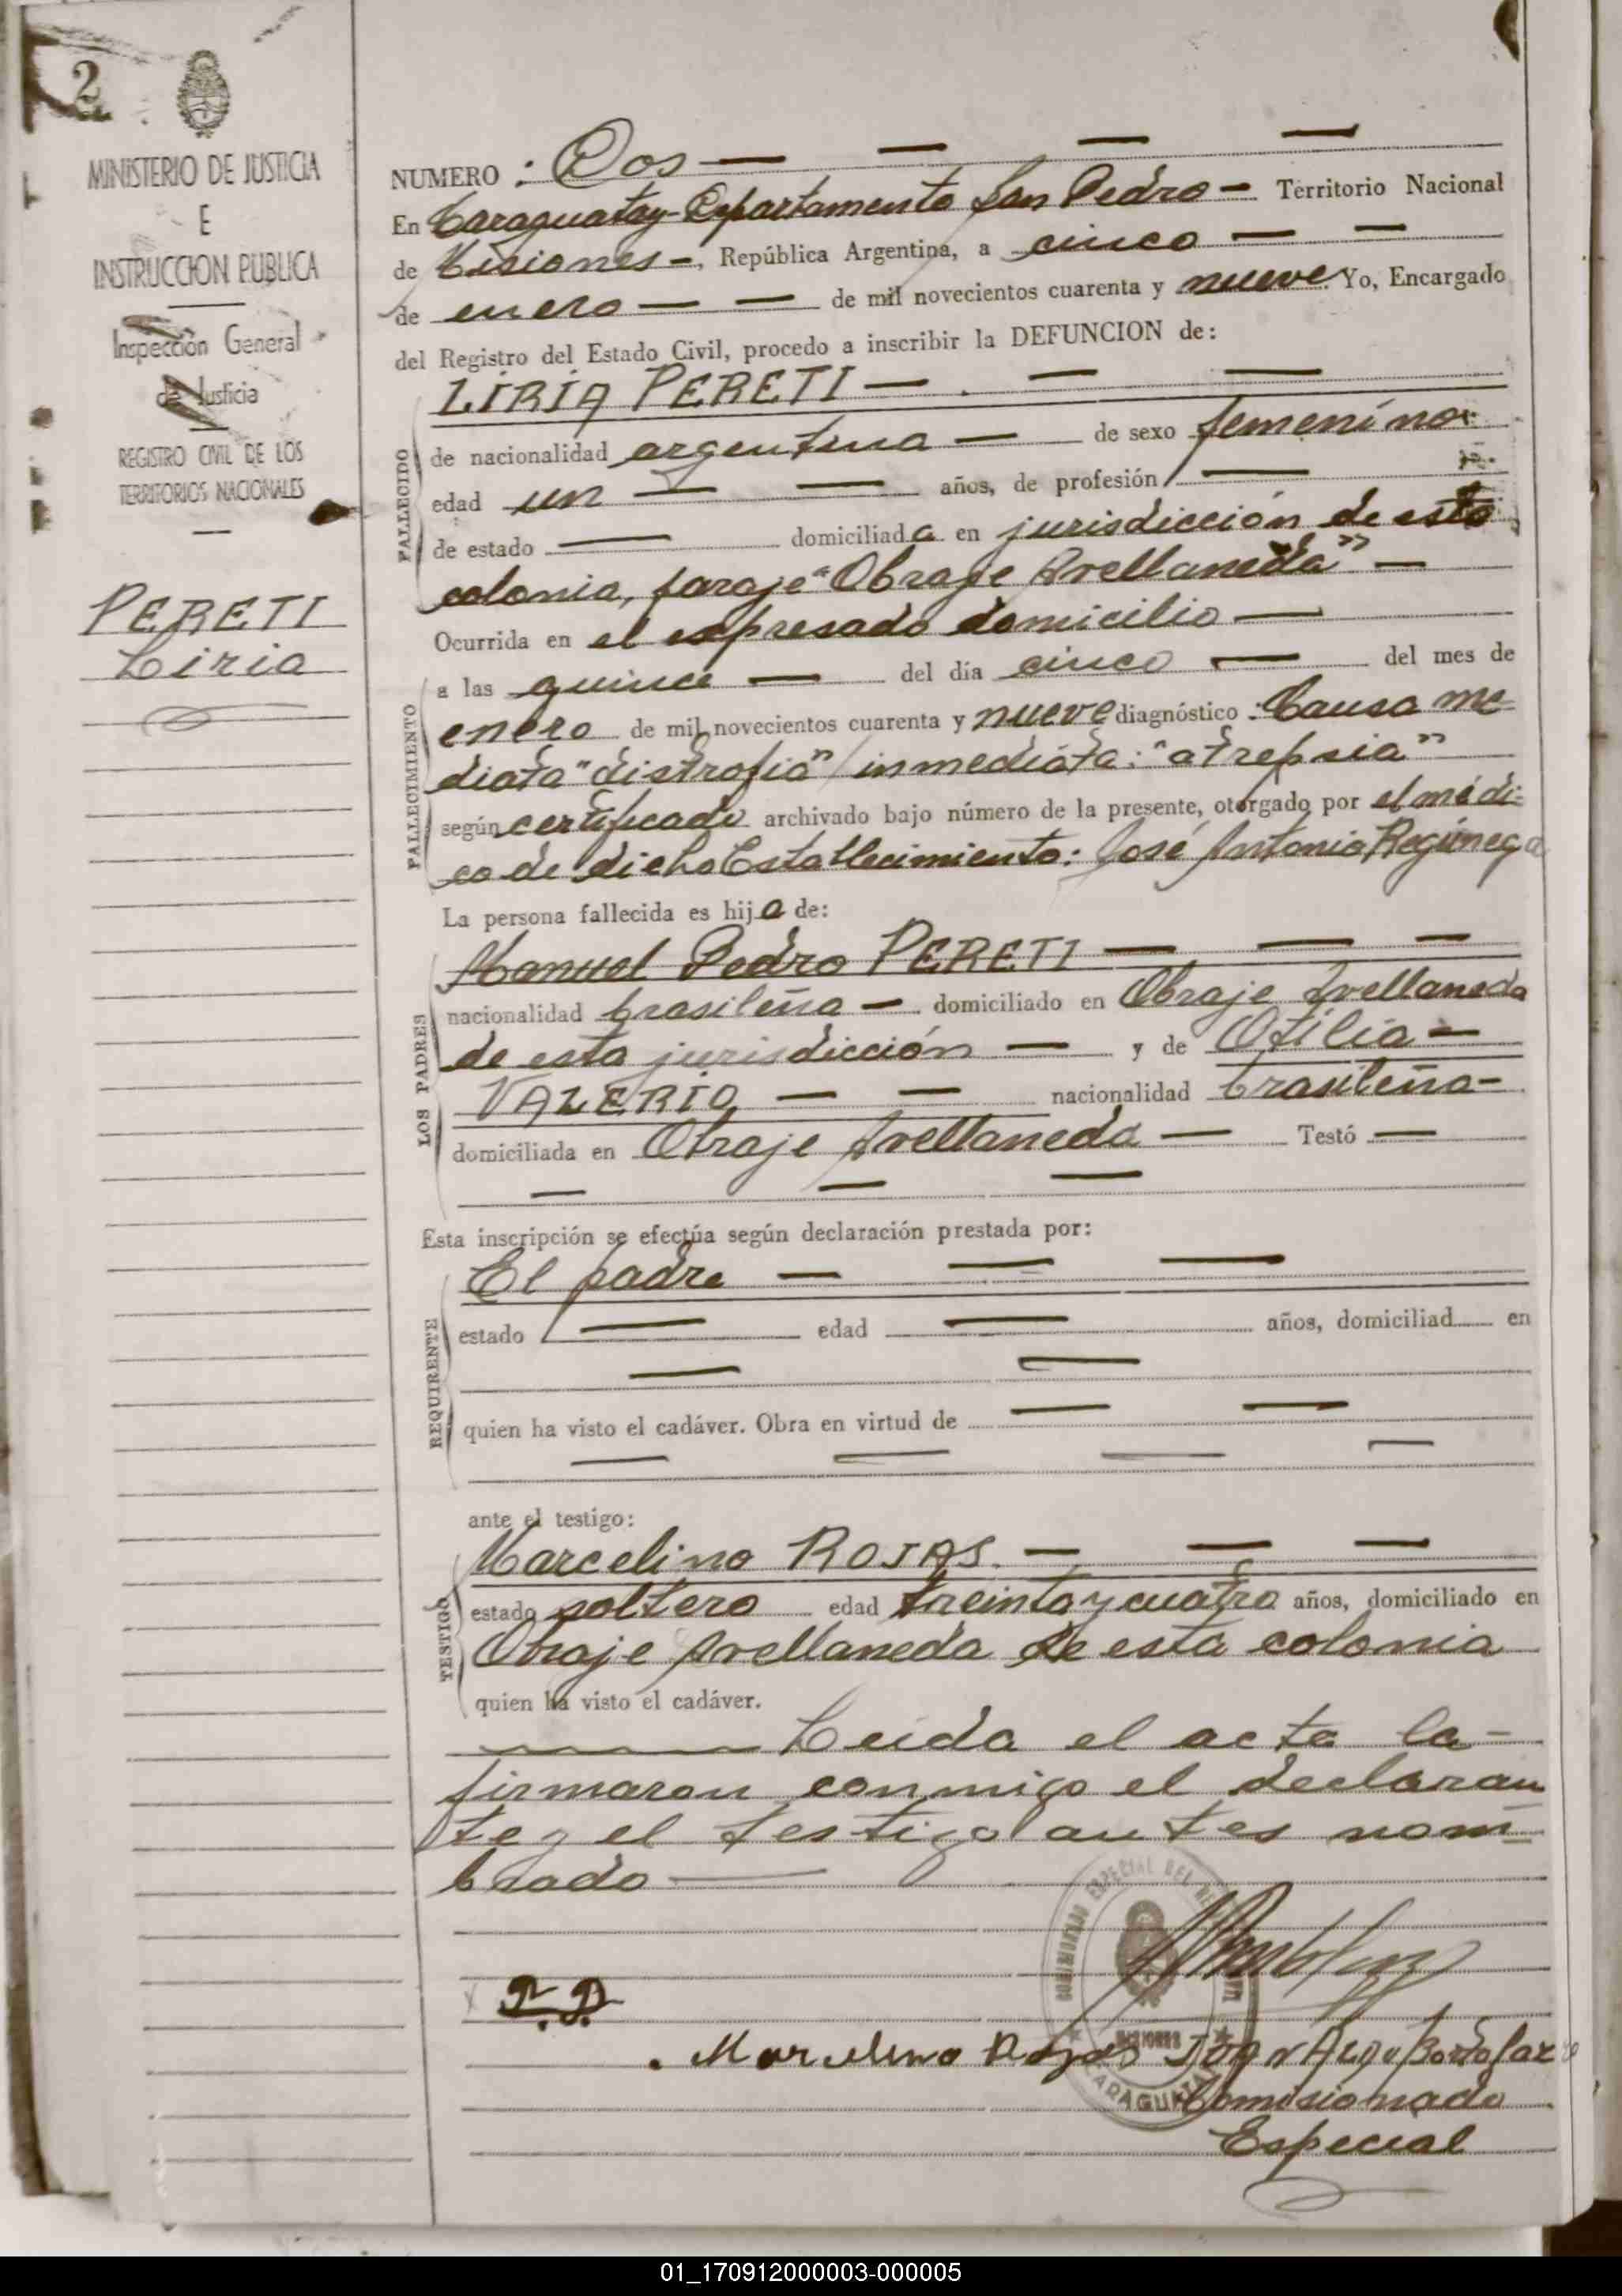 2
MINISTERIO DE JUSTICIA
E
INSTRUCCION PUBLICA
Inspección General
de Justicia
REGISTRO CIVIL DE LOS
TERRITORIOS NACIONALES
PERETI
Liria
NUMERO : Dos — — — —
En Caraguatay - Departamento San Pedro - Territorio Nacional
de Misiones -, República Argentina, a cinco — —
de enero — — de mil novecientos cuarenta y nueve. Yo, Encargado
del Registro del Estado Civil, procedo a inscribir la DEFUNCION de:
FALLECIDO
LIRIA PERETI — — —
de nacionalidad argentina — de sexo femenino
edad un — — años, de profesión —
de estado — domiciliada en jurisdicción de esta
colonia, paraje "Obraje Avellaneda" —
FALLECIMIENTO
Ocurrida en el expresado domicilio —
a las quince — del día cinco — del mes de
enero de mil novecientos cuarenta y nueve diagnóstico : Causa me-
diata "distrofia" inmediata: "atrepsia"
según certificado archivado bajo número de la presente, otorgado por el médi-
co de dicho Establecimiento: José Antonio
La persona fallecida es hija de:
LOS PADRES
Manuel Pedro PERETI — — —
nacionalidad brasileña — domiciliado en Obraje Avellaneda
de esta jurisdicción — y de Otilia —
VALERIO — — nacionalidad brasileña -
domiciliada en Obraje Avellaneda — Testó —
— — —
Esta inscripción se efectúa según declaración prestada por:
REQUIRENTE
El padre — — —
estado — edad — años, domiciliad en
— —
quien ha visto el cadáver. Obra en virtud de — —
— — — —
ante el testigo:
TESTIGO
Marcelino ROJAS. — — —
estado soltero edad treinta y cuatro años, domiciliado en
Obraje Avellaneda de esta colonia
quien ha visto el cadáver.
Leida el acta la
firmaron conmigo el declaran
te y el testigo antes nom
brado —
COMISIONADO ESPECIAL DEL
MISIONES
CARAGUATAY
P. P.
Marcelino Rojas
Comisionado
Especial
01_170912000003-000005